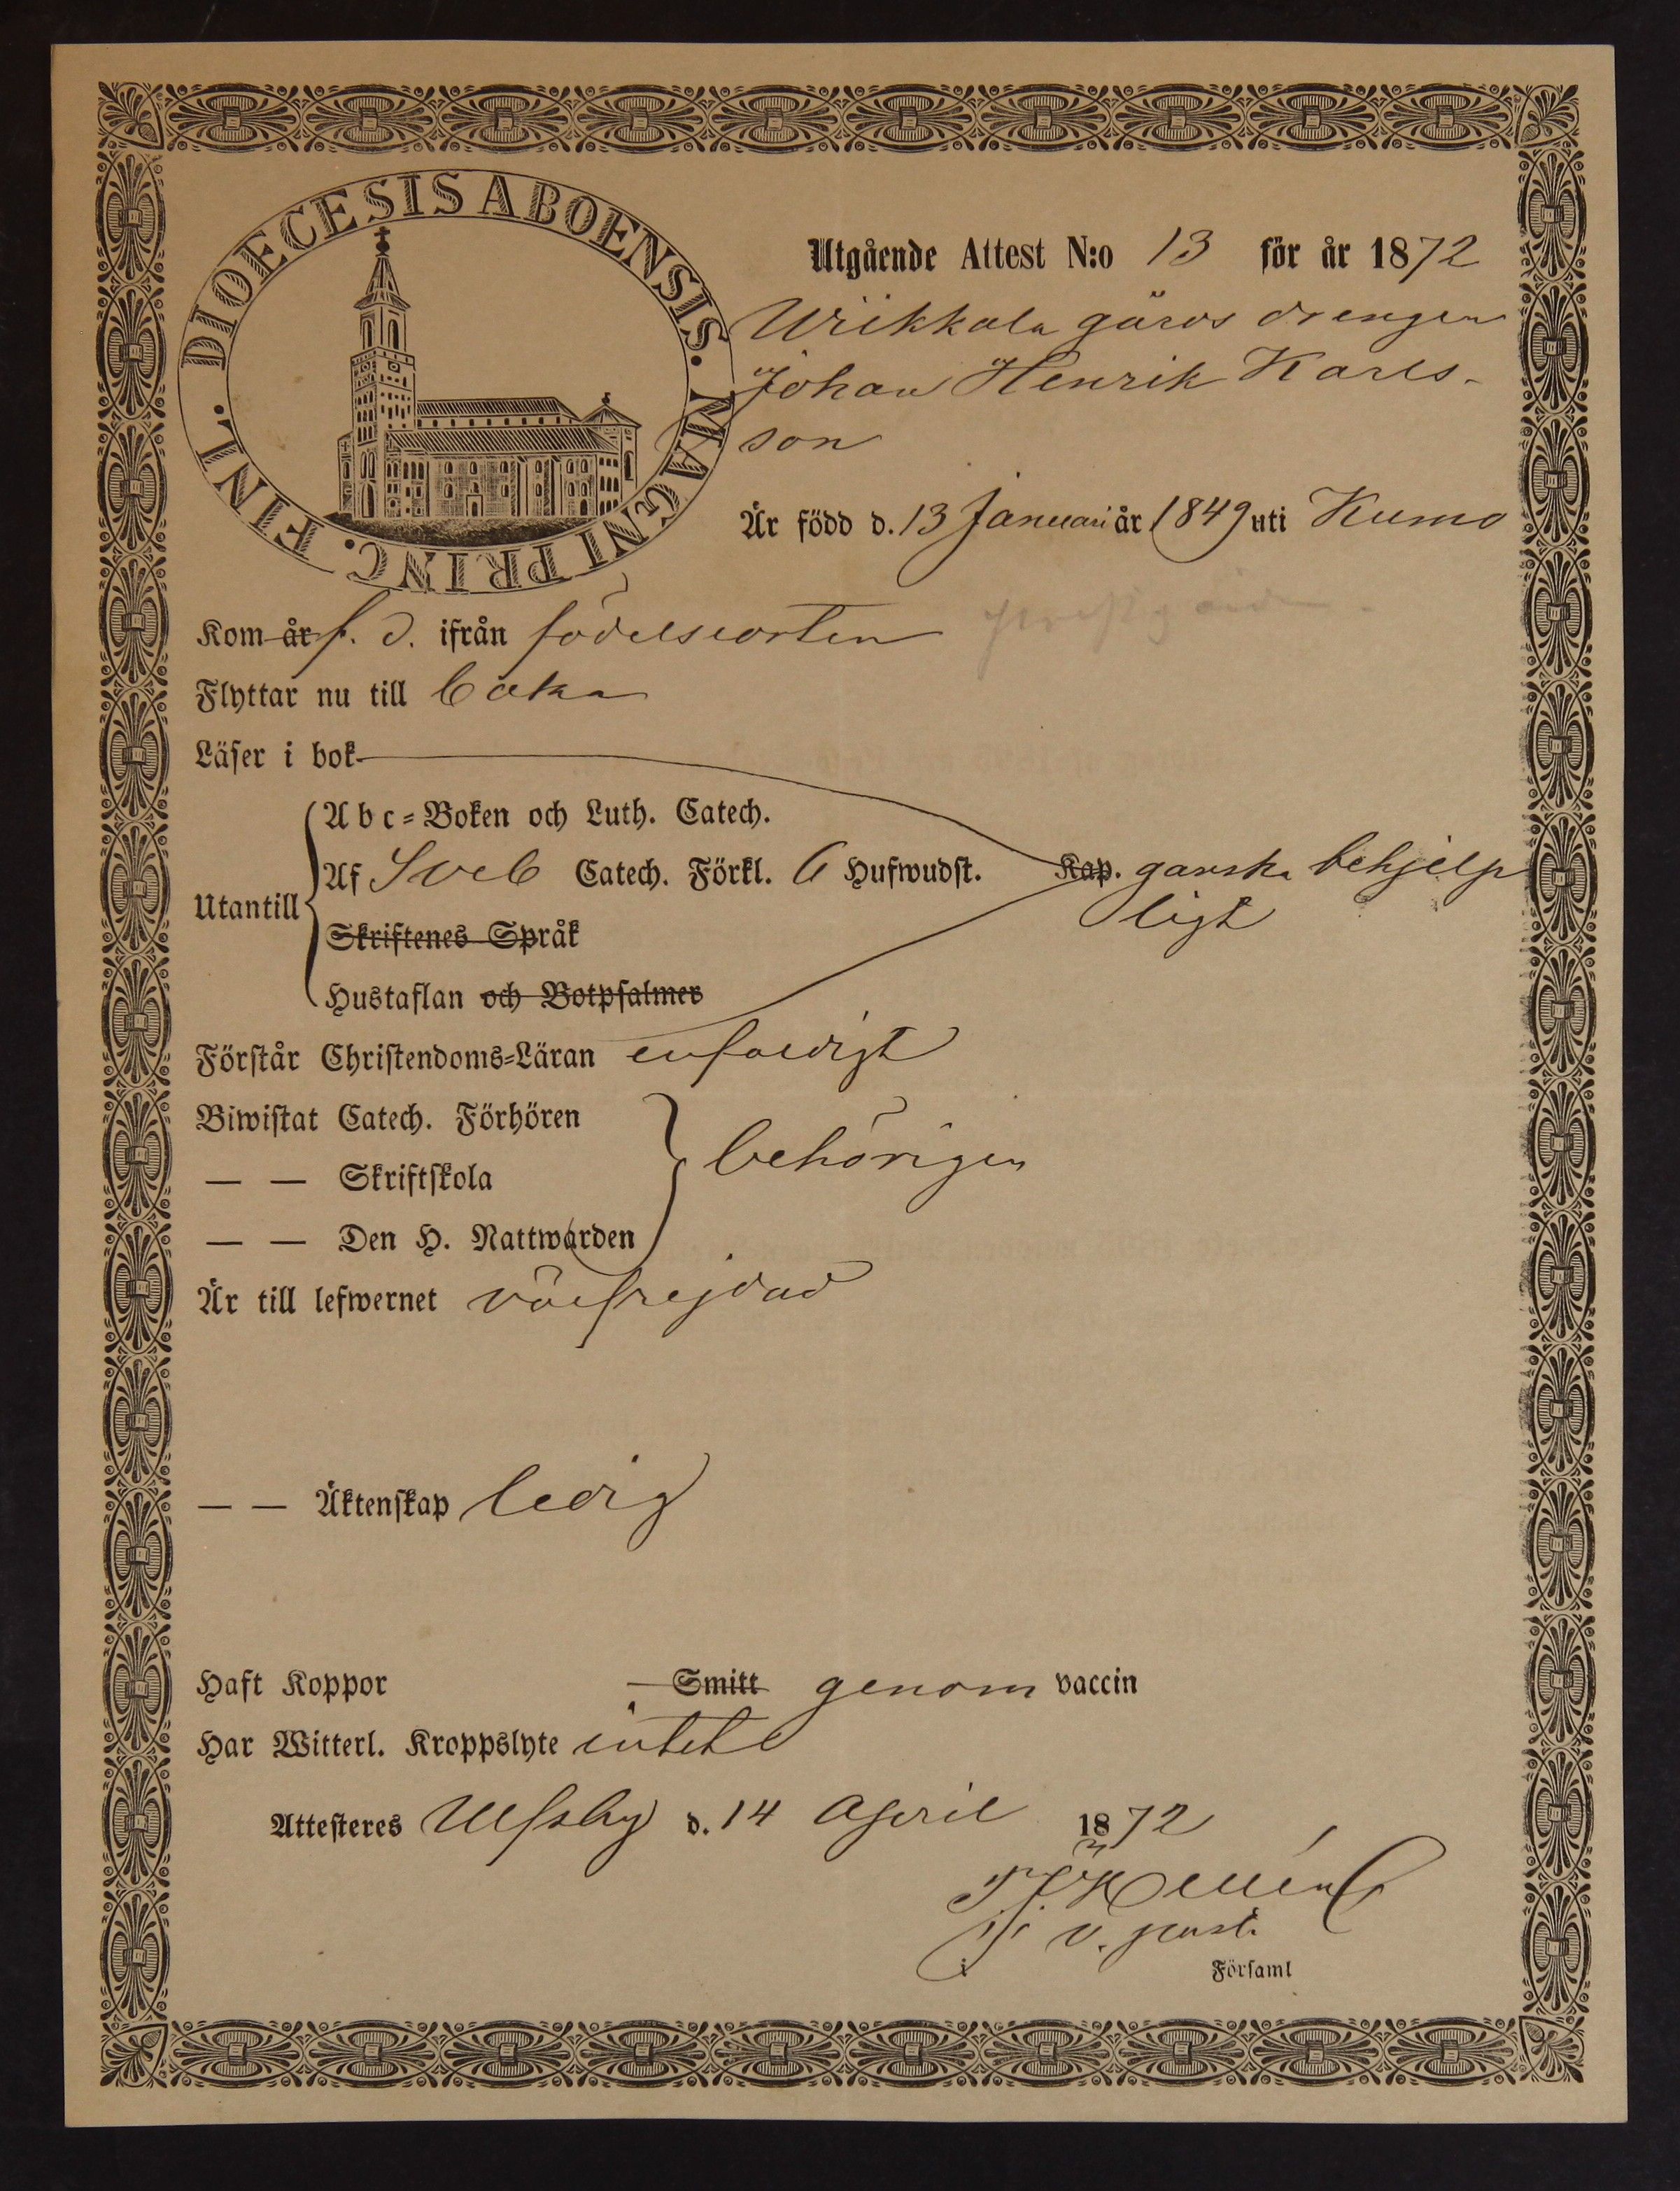 DIOECESIS ABOENSIS. MAGNI PRINC. FINL.
Utgående Attest N:o 13 för år 1872
gårds drengen
Johan Henrik Karls-
son
Är född d. 13 Januari år 1849 uti Kumo
Kom år f. d. ifrån födelseorten
Flyttar nu till
Läser i bok
Abc-Boken och Luth. Catech.
Utantill Af Sveb Catech. Förkl. 6 Hufwudst. Kap. ganska behjelp
ligt
Skriftenes Språk
Hustaflan och Botpsalmer
Förstår Christendoms-Läran enfaldigt
Biwistat Catech. Förhören
— — Skriftskola behörigen
— — Den H. Nattwarden
Är till lefwernet välfrejdad
— — Äktenskap ledig
Haft Koppor — Smitt genom vaccin
Har Witterl. Kroppslyte intet
Attesteres Ulfsby d. 14 April 1872
v. past.
i Församl